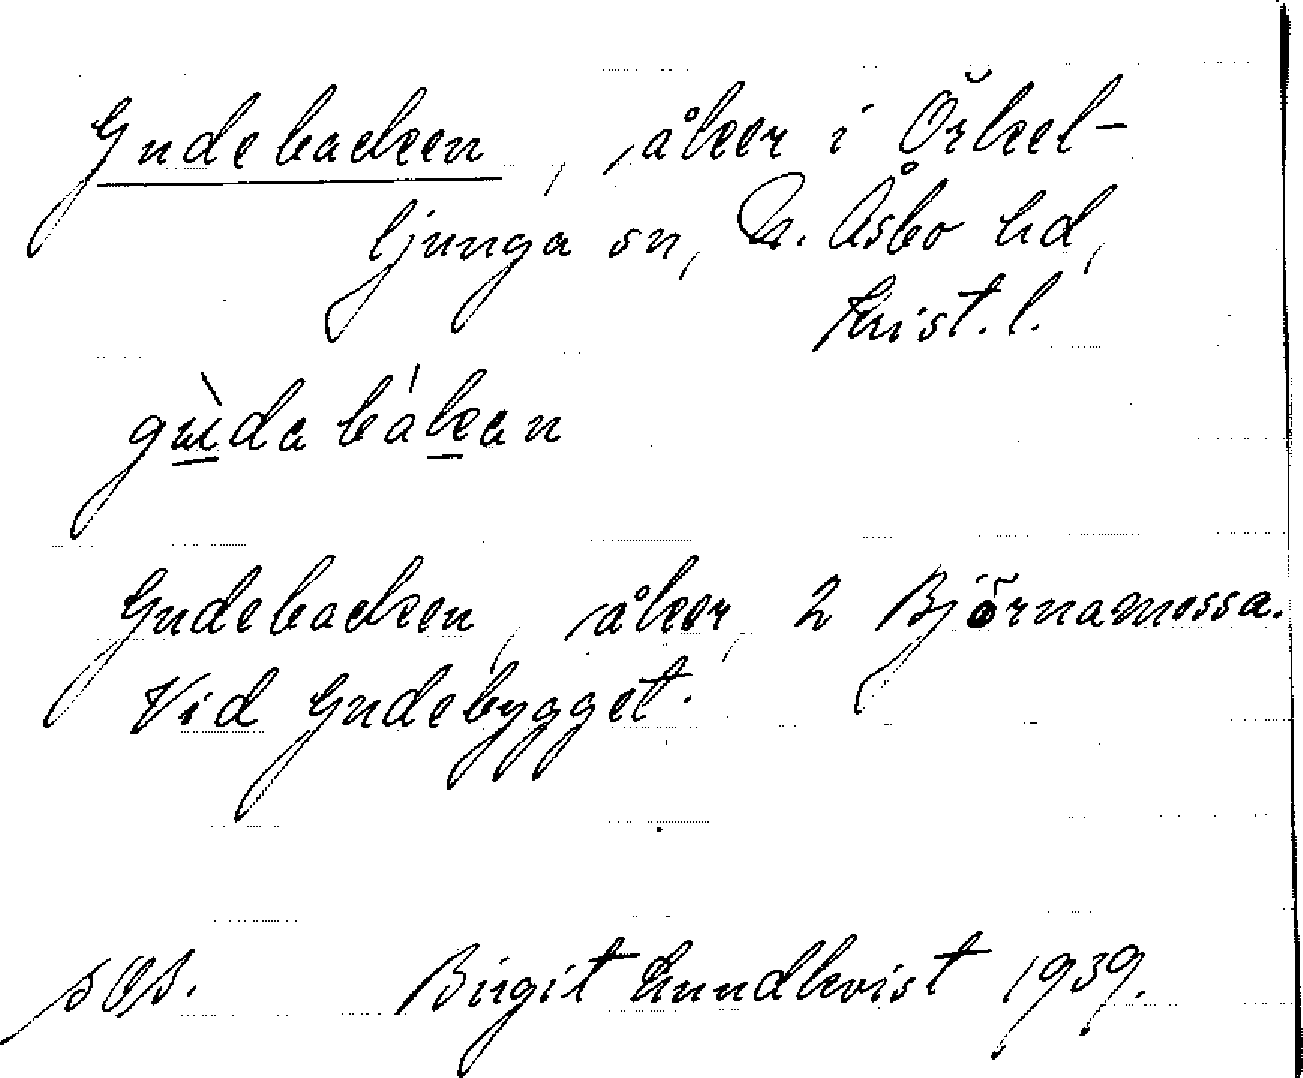 Gudebacken, åker i Örkel-
ljunga sn, N. Åsbo hd,
Krist. l.
Gudebacken, åker, 2 Björnamossa.
Vid Gudebygget.
Birgit Lundkvist 1939.